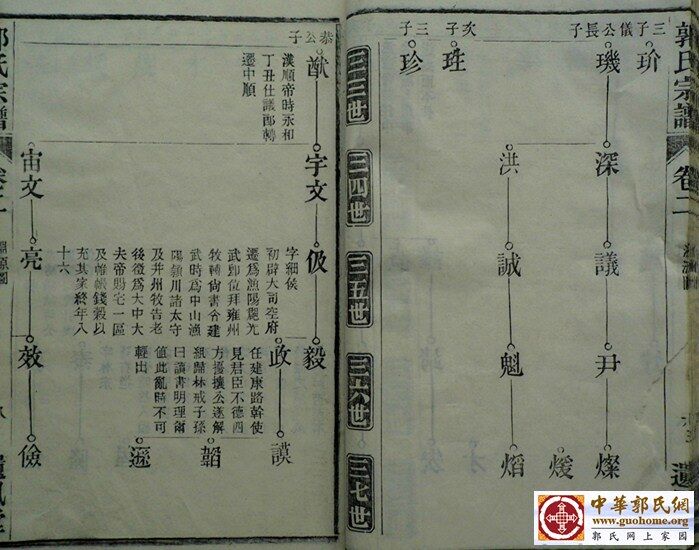 郭氏宗譜
卷二
三子
玠
儀公長子
璣
次子
珄
三子
珍
深
洪
議
誠
尹
魁
燦
煖
熖
三三世
三四世
三五世
三六世
三七世
恭公子
猷
漢順帝時永和
丁丑仕議郎轉
遷中順
宇文
宙文
伋
字細侯
初辟大司空府
遷爲漁陽
武卽位拜雍州
牧轉尚書令建
武時爲中山漁
陽潁川諸太守
及并州牧告老
後徵爲大中大
夫帝賜宅一區
及帷帳錢穀以
充其家終年八
十六
亮
毅
政
任建康路幹使
見君臣不德四
方擾攘公遂解
組歸林戒子孫
曰讀書明理爾
值此亂時不可
輕出
效
謨
韜
遜
儉
郭氏宗譜
淵源圖
八
中華郭氏網
www.guohome.org
郭氏网上家园